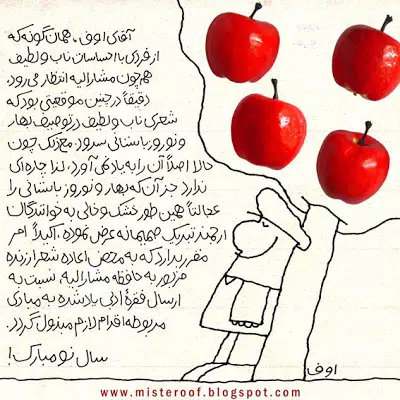 آقای اوف، همان گونه که
از فردی با احساسات ناب و لطیف
هم چون مشارالیه انتظار می رود
دقیقاً در چنین موقعیتی بود که
شعری ناب و لطیف در توصیف بهار
و نوروز باستانی سرود. مع ذلک چون
حالا اصلاً آن را به یاد نمی آورد، لذا چاره ای
ندارد جز آن که بهار و نوروز باستانی را
عجالتاً همین طور خشک و خالی به خوانندگان
ارجمند تبریک صمیمانه عرض نموده، اکیداً امر
مقرر بدارد که به محض اعاده شعر ارزنده
مزبور به حافظه مشارالیه، نسبت به
ارسال فقره ادبی یاد شده به مبادی
مربوطه اقدام لازم مبذول گردد.
سال نو مبارک!
اوف
www.misteroof.blogspot.com